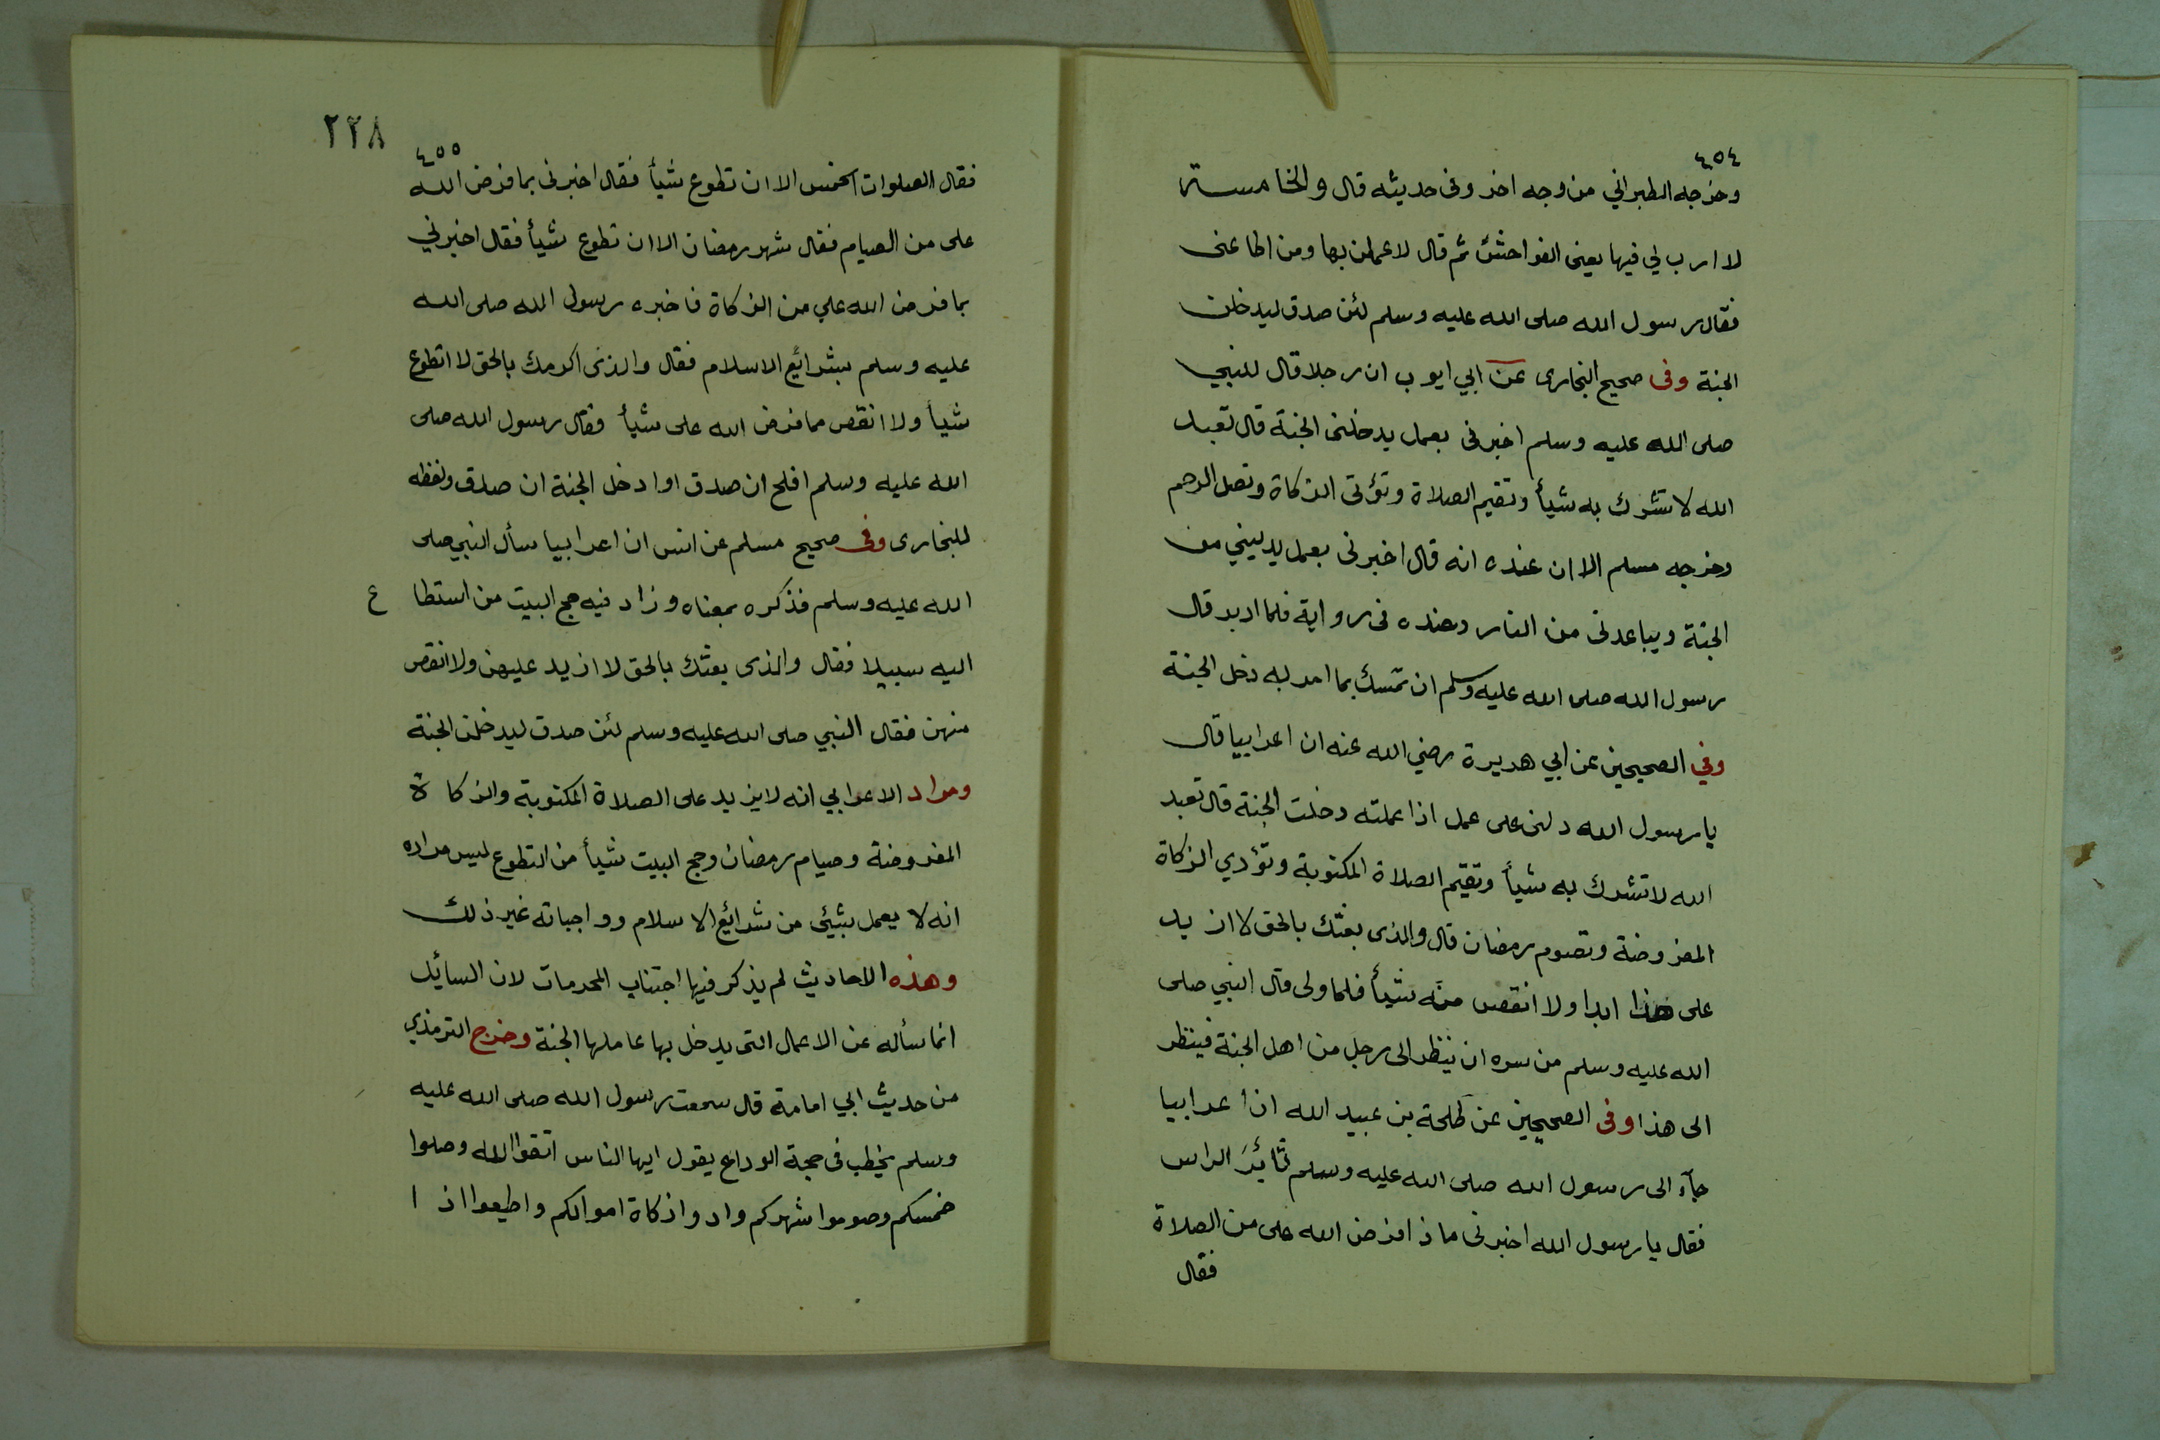 ٤٥٤
وخرجه الطبراني من وجه اخر وفى حديثه قال والخامسة
لا ارب لي فيها يعنى الفواحش ثم قال لاعملن بها ومن اطاعنى
فقال رسول الله صلى الله عليه وسلم لئن صدق ليدخلن
الجنة وفى صحيح البخارى عن ابي ايوب ان رجلا قال للنبي
صلى الله عليه وسلم اخبرنى بعمل يدخلنى الجنة قال تعبد
الله لا تشرك به شيأ وتقيم الصلاة وتؤتى الزكاة وتصل الرحم
وخرجه مسلم الا ان عنده انه قال اخبرنى بعمل يدنيني من
الجنة ويباعدنى من النار وعنده فى رواية فلما ادبر قال
رسول الله صلى الله عليه وسلم ان تمسك بما امر به دخل الجنة
وفي الصحيحين عن ابي هريرة رضي الله عنه ان اعرابيا قال
يا رسول الله دلنى على عمل اذا عملته دخلت الجنة قال تعبد
الله لا تشرك به شيأ وتقيم الصلاة المكتوبة وتؤدي الزكاة
المفروضة وتصوم رمضان قال والذى بعثك بالحق لا ازيد
على هذا ابدا ولا انقص منه شيأ فلما ولى قال النبي صلى
الله عليه وسلم من سره ان ينظر الى رجل من اهل الجنة فينظر
الى هذا وفى الصحيحين عن طلحة بن عبيد الله ان اعرابيا
جآء الى رسول الله صلى الله عليه وسلم ثائر الراس
فقال يا رسول الله اخبرنى ماذا فرض الله على من الصلاة
فقال
٢٢٨
٤٥٥
فقال الصلوات الخمس الا ان تطوع شيأ فقال اخبرنى بما فرض الله
على من الصيام فقال شهر رمضان الا ان تطوع شيأ فقال اخبرني
بما فرض الله علي من الزكاة فاخبره رسول الله صلى الله
عليه وسلم بشرائع الاسلام فقال والذى اكرمك بالحق لا اتطوع
شيأ ولا انقص مما فرض الله على شيأ فقال رسول الله صلى
الله عليه وسلم افلح ان صدق او ادخل الجنة ان صدق ولفظه
للبخارى وفى صحيح مسلم عن انس ان اعرابيا سأل النبي صلى
الله عليه وسلم فذكره بمعناه وزاد فيه حج البيت من استطا ع
اليه سبيلا فقال والذى بعثك بالحق لا ازيد عليهن ولا انقص
منهن فقال النبي صلى الله عليه وسلم لئن صدق ليدخلن الجنة
ومراد الاعرابي انه لا يزيد على الصلاة المكتوبة والزكا ة
المفروضة وصيام رمضان وحج البيت شيأ من التطوع ليس مراده
انه لا يعمل بشيئ من شرائع الاسلام وواجباته غير ذلك
وهذه الاحاديث لم يذكر فيها اجتناب المحرمات لان السائل
انما سأله عن الاعمال التى يدخل بها عاملها الجنة وخرج الترمذي
من حديث ابي امامة قال سمعت رسول الله صلى الله عليه
وسلم يخطب فى حجة الوداع يقول ايها الناس اتقوا الله وصلوا
خمسكم وصوموا شهركم وادوا زكاة اموالكم واطيعوا اذ ا